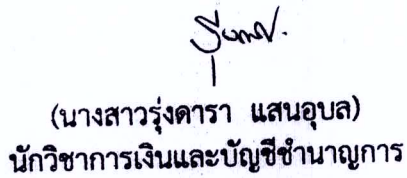 (นางสาวรุ่งดารา แสนอุบล)
นักวิชาการเงินและบัญชีชำนาญการ